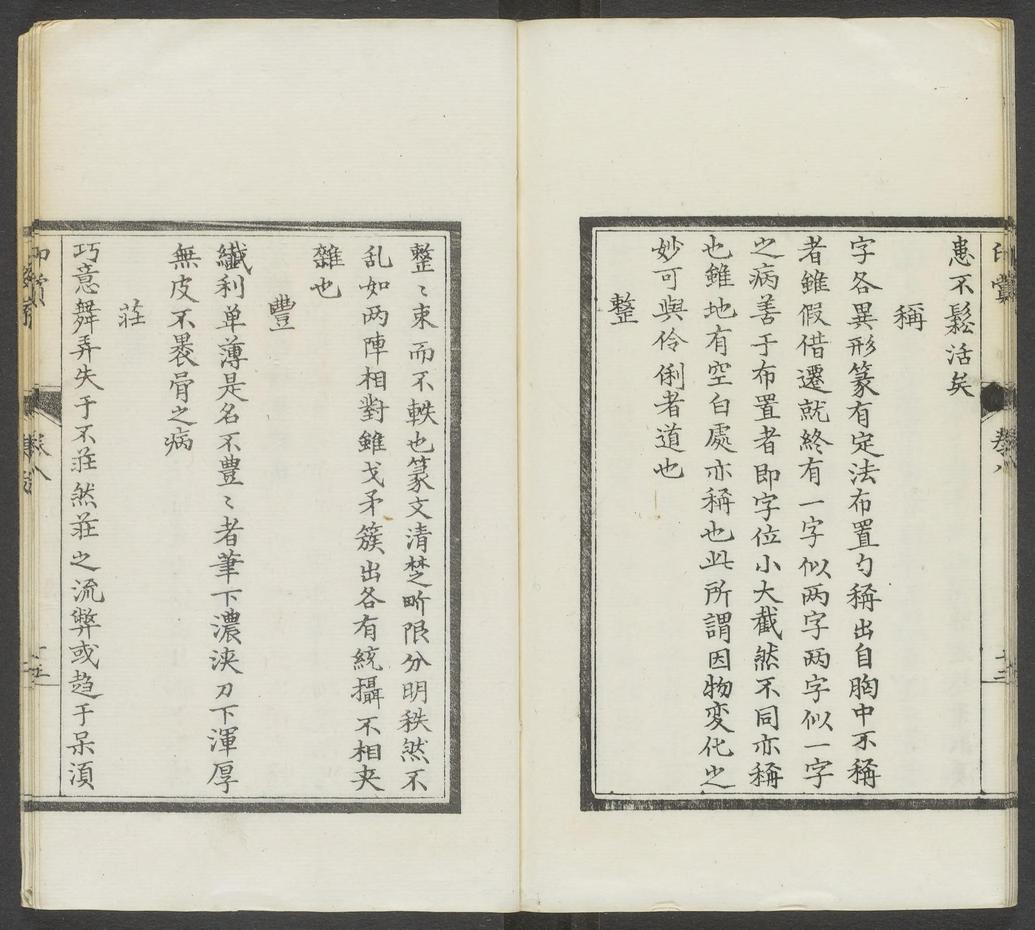 患不鬆活矣
稱
字各異形篆有定法布置勻稱出自胸中不稱
者雖假借遷就終有一字似两字两字似一字
之病善于布置者即字位小大截然不同亦稱
也雖地有空白處亦稱也此所謂因物变化之
妙可與伶俐者道也
整
整〻束而不軼也篆文清楚畍限分明秩然不
乱如两陣相對雖戈矛簇出各有統攝不相夾
雜也
豐
纖利单薄是名不豊〻者筆下濃浹刀下渾厚
無皮不褁骨之病
莊
巧意舞弄失于不莊然莊之流弊或趋于呆湏